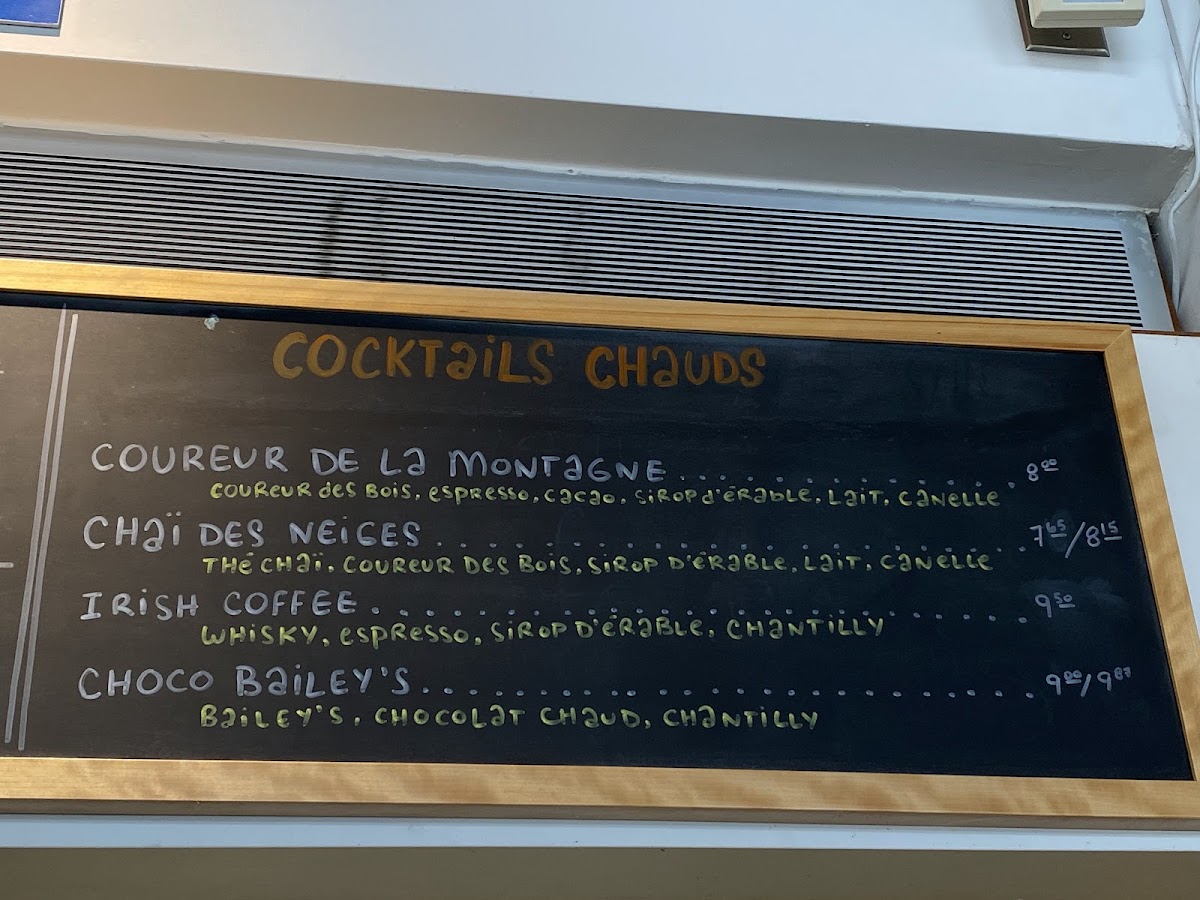 COCKTaiLS CHaUDS
COUREUR DE La MONTaGNE.................8⁰⁰
COUREUR des BOIS, espresso, cacao, SIROP d'ÉRaBLE, LaIT, CaNELLE
CHaï DES NEIGES.................7⁶⁵/8¹⁵
THÉ CHaï, COUREUR DES BOIS, SIROP D'ÉRaBLE, LaIT, CaNELLE
IRISH COFFEE.................9⁵⁰
WHISKY, espresso, SIROP D'ÉRaBLE, CHANTILLY
CHOCO BaiLEY'S.................9⁰⁰/9⁸⁷
BaiLEY'S, CHOCOLaT CHaUD, CHaNTILLY